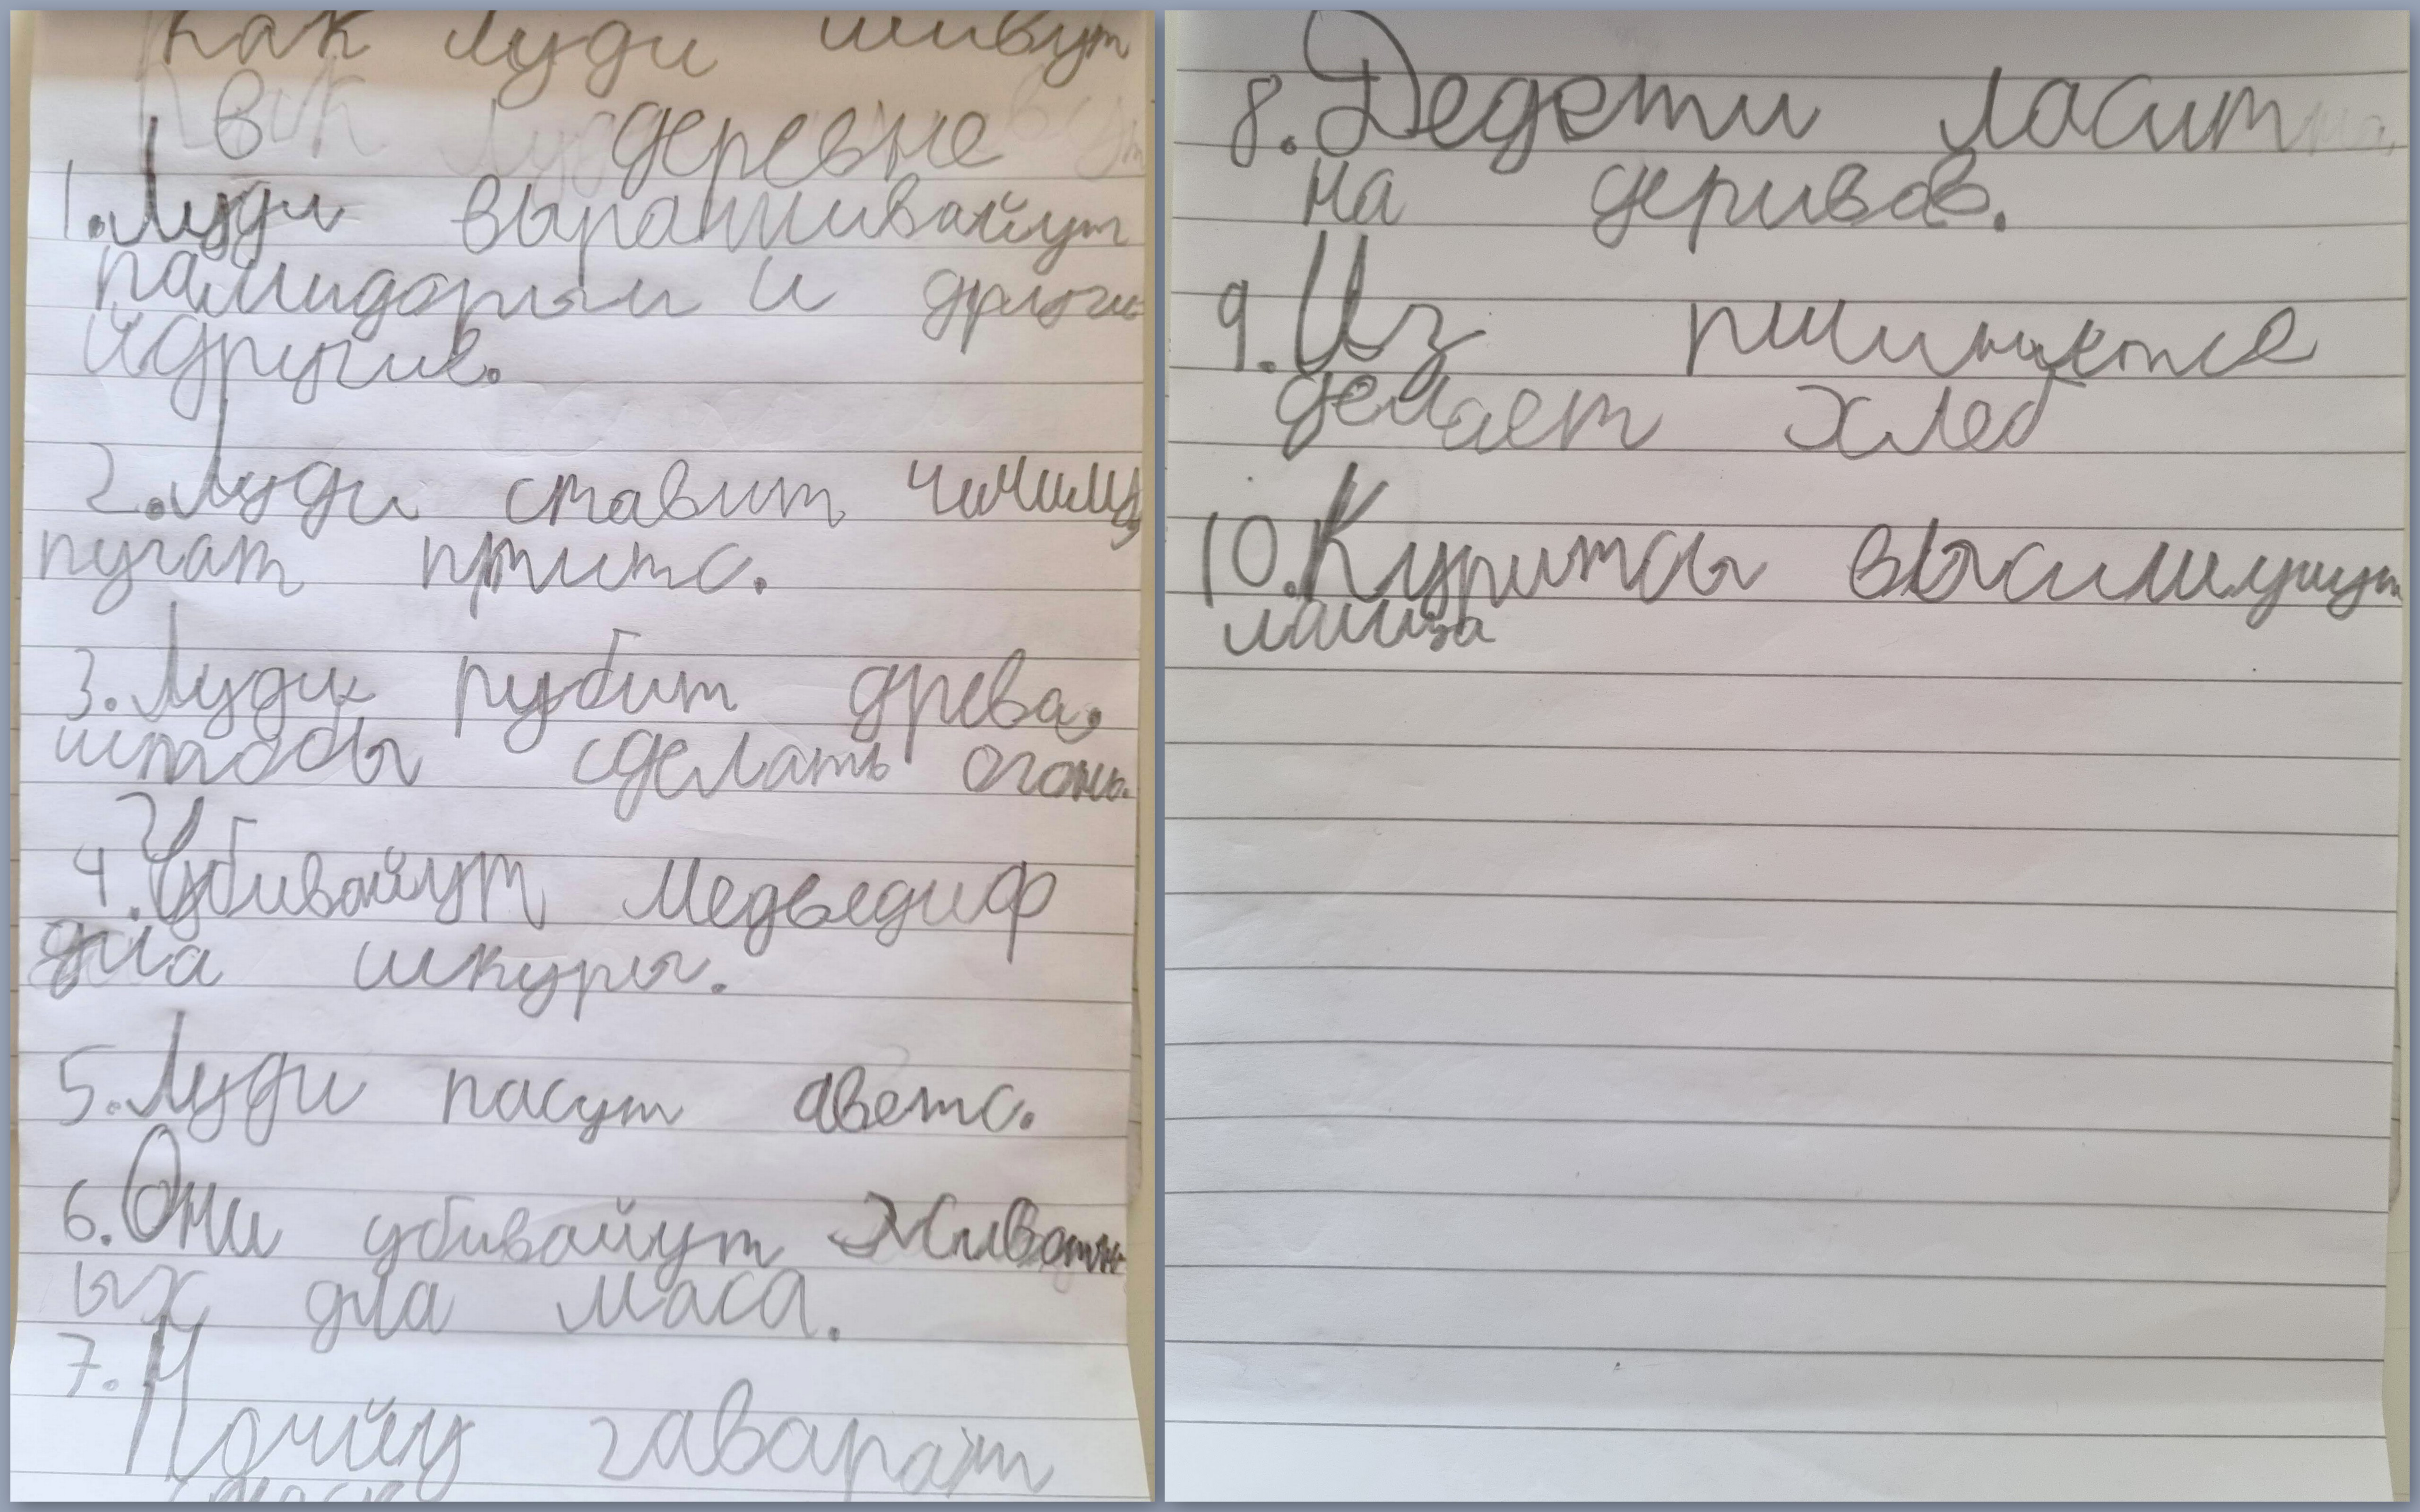 Как луди шивут
в деревне
1. Луди выраншивайут
памидорыи и други
йдругие.
2. Луди ставит
пугат пртитс.
3. Луди рубит древа.
штобы сделать огонь.
4. Убивайут медведиф
дла шкуры.
5. Луди пасут аветс.
6. Они убивайут Животн
ых дла маса.
7. Ночйу гаварат
8. Дедети ласит
на деривов.
9. Из
делает хлеб
10. Куритсы